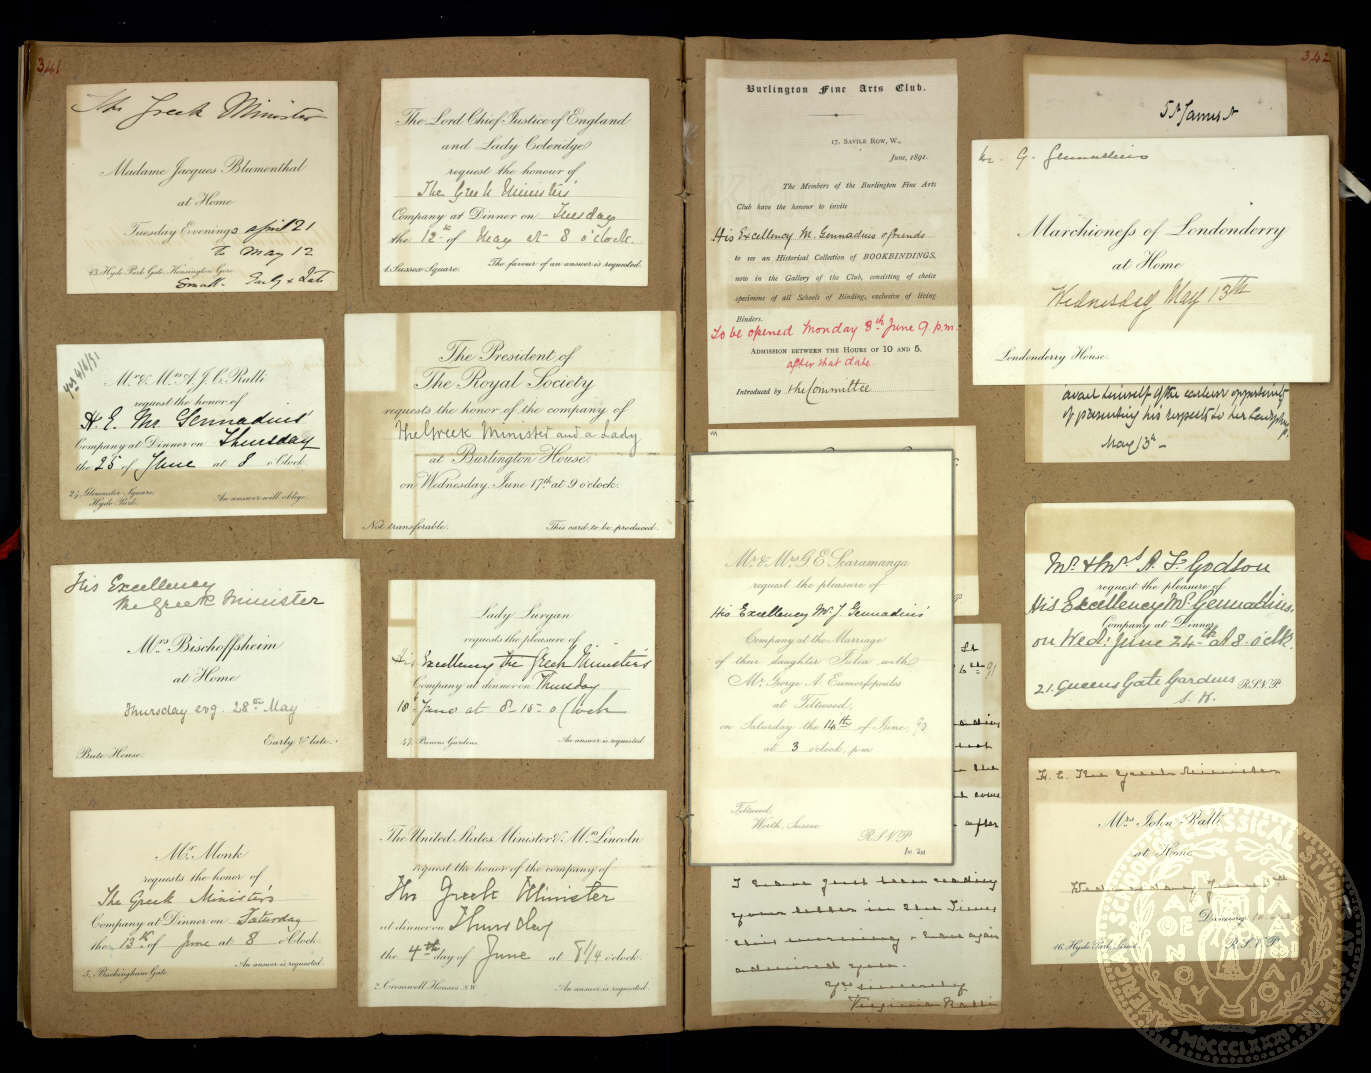 341
The Greek Minister
Madame Jacques Blumenthal
at Home
Tuesday Evenings April 21
to May 12
43. Hyde Park Gate. Kensington Gore.
Small. Early & Late
The Lord Chief Justice of England
and Lady Coleridge
request the honour of
The Greek Minister's
Company at Dinner on Tuesday
the 12th of May at 8 o'clock.
1. Sussex Square. The favour of an answer is requested.
Mr. & Mrs. A. J. C. Ralli
request the honor of
H. E. Mr. Gennadius'
Company at Dinner on Thursday
the 25 of June at 8 o'Clock.
24, Gloucester Square,
Hyde Park. An answer will oblige.
The President of
The Royal Society
requests the honor of the company of
The Greek Minister and a Lady
at Burlington House.
on Wednesday, June 17th at 9 o'clock.
Not transferable. This card to be produced.
His Excellency
the Greek Minister
Mrs. Bischoffsheim
at Home
Thursday evg. 28th May
Early & late.
Bute House.
Lady Lurgan
requests the pleasure of
His Excellency the Greek Minister's
Company at dinner on Thursday
18 June at 8-15 o'Clock
An answer is requested.
Mr. Monk
requests the honor of
The Greek Minister's
Company at Dinner on Saturday
the 13th of June at 8 o'Clock.
5, Buckingham Gate. An answer is requested.
The United States Minister & Mrs. Lincoln
request the honor of the company of
The Greek Minister
at dinner on Thursday
the 4th day of June at 8 1/4 o'clock.
2 Cromwell Houses. S.W. An answer is requested.
342
Burlington Fine Arts Club.
17, Savile Row, W.,
June, 1891.
The Members of the Burlington Fine Arts
Club have the honour to invite
His Excellency M. Gennadius & friends
to see an Historical Collection of BOOKBINDINGS,
now in the Gallery of the Club, consisting of choice
specimens of all Schools of Binding, exclusive of living
Binders.
To be opened Monday 8th June 9 p.m.
Admission between the Hours of 10 and 5.
after that date
Introduced by the Committee
St James's
Mr. G. Gennadius
Marchioness of Londonderry
at Home
Wednesday May 13th
Londonderry House.
avail himself of the earliest opportunity
of presenting his respects to her Ladyship.
May 13th
Mr. & Mrs. G. E. Scaramanga
request the pleasure of
His Excellency Mr. J. Gennadius'
Company at the Marriage
of their daughter Julia with
Mr. George A. Eumorfopoulos
at Tiltwood,
on Saturday the 14th of June,
at 3 o'clock, p.m.
Tiltwood,
Worth, Sussex R.S.V.P.
Mr. & Mrs. A. F. Godson
request the pleasure of
His Excellency Mr. Gennadius.
Company at Dinner
on Wed: June 24th at 8 o'clk.
21. Queens Gate Gardens R.S.V.P.
S. W.
I have just been reading
your letter in the Times
this morning & have again
admired you.
Yrs sincerely
Virginia Ralli
H. E. The Greek Minister
Mrs. John Ralli
at Home
Dancing
R.S.V.P.
AMERICAN SCHOOL OF CLASSICAL STUDIES AT ATHENS
MDCCCLXXXI